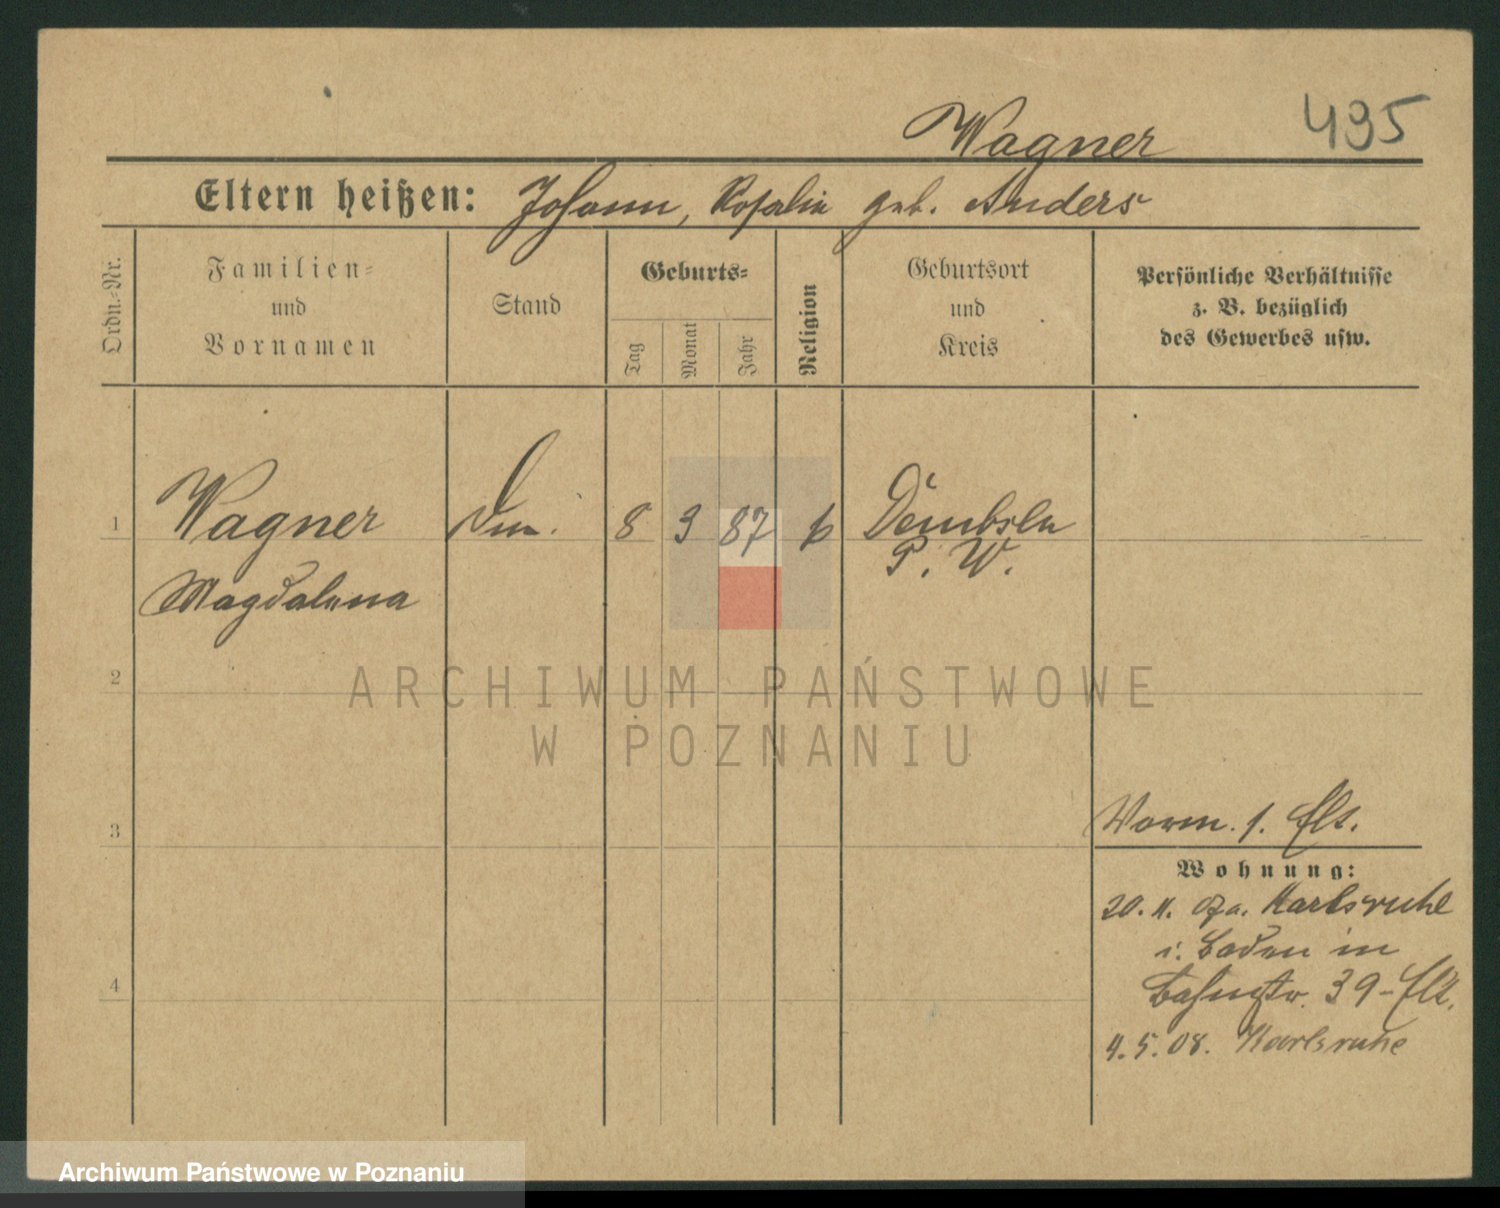 Wagner 495
Eltern heißen: Johann, Rosalie geb. Anders
Ordn.-Nr.
Familien-
und
Vornamen
Stand
Geburts-
Tag
Monat
Jahr
Religion
Geburtsort
und
Kreis
Persönliche Verhältnisse
z. B. bezüglich
des Gewerbes usw.
1 Wagner 8 3 87 k
P. W.
Magdalena
2
3
4
Vorm. s. Elt.
Wohnung:
20. Karlsruhe
i. Baden in
Bahnstr. 39 - Elt.
4. 5. 08. Karlsruhe
ARCHIWUM PAŃSTWOWE
W POZNANIU
Archiwum Państwowe w Poznaniu